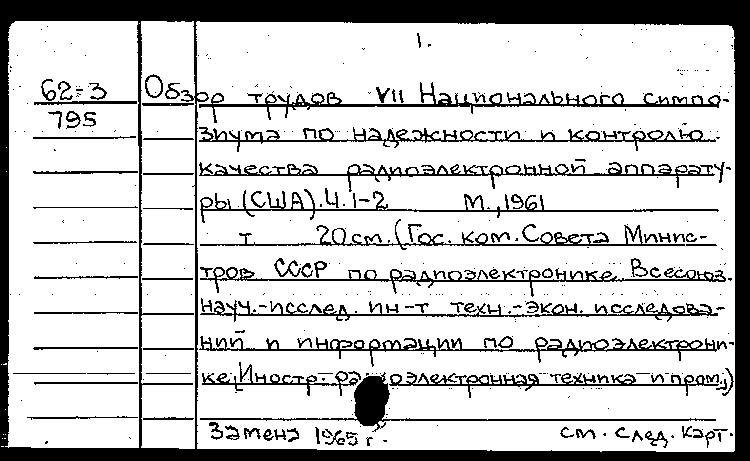 1.
62-3 Обзор трудов VII Национального симпо-
795 зиума по надежности и контролю
качества радиоэлектронной аппарату-
ры (США). Ч. 1-2 М., 1961
т 20 см. (Гос. ком. Совета Минис-
тров СССР по радиоэлектронике. Всесоюз.
науч.-исслед. ин-т техн.-экон. исследова-
ний и информации по радиоэлектрони-
ке. Иностр. радиоэлектронная техника и пром.)
Замена 1965 г. см. след. карт.